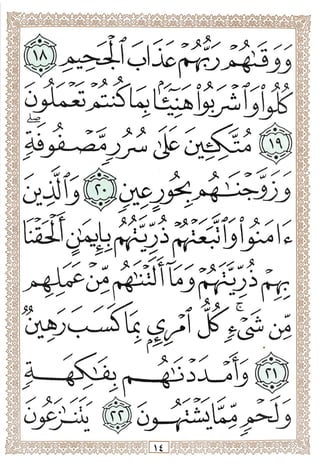 وَوَقَىٰهُمْ رَبُّهُمْ عَذَابَ ٱلْجَحِيمِ ١٨
كُلُوا۟ وَٱشْرَبُوا۟ هَنِيٓـًٔۢا بِمَا كُنتُمْ تَعْمَلُونَ
١٩ مُتَّكِـِٔينَ عَلَىٰ سُرُرٍ مَّصْفُوفَةٍ ۖ
وَزَوَّجْنَـٰهُم بِحُورٍ عِينٍ ٢٠ وَٱلَّذِينَ
ءَامَنُوا۟ وَٱتَّبَعَتْهُمْ ذُرِّيَّتُهُم بِإِيمَـٰنٍ أَلْحَقْنَا
بِهِمْ ذُرِّيَّتَهُمْ وَمَآ أَلَتْنَـٰهُم مِّنْ عَمَلِهِم
مِّن شَىْءٍ ۚ كُلُّ ٱمْرِئٍۭ بِمَا كَسَبَ رَهِينٌ
٢١ وَأَمْدَدْنَـٰهُم بِفَـٰكِهَةٍ
وَلَحْمٍ مِّمَّا يَشْتَهُونَ ٢٢ يَتَنَـٰزَعُونَ
١٤